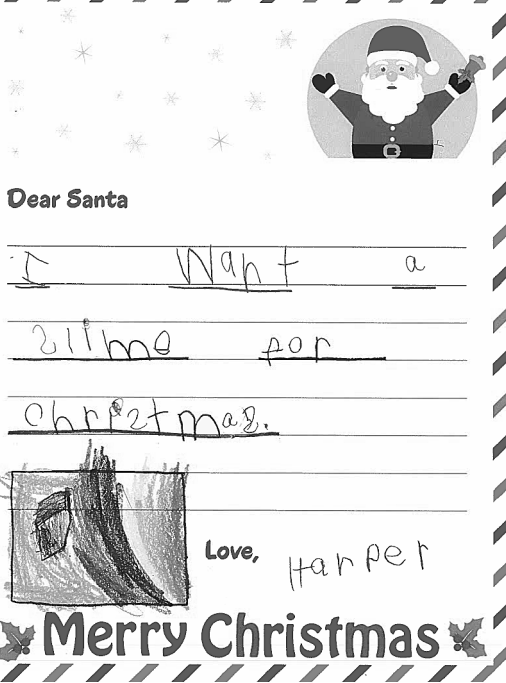 Dear Santa
I Want a
slime for
christmas.
Love, Harper
Merry Christmas